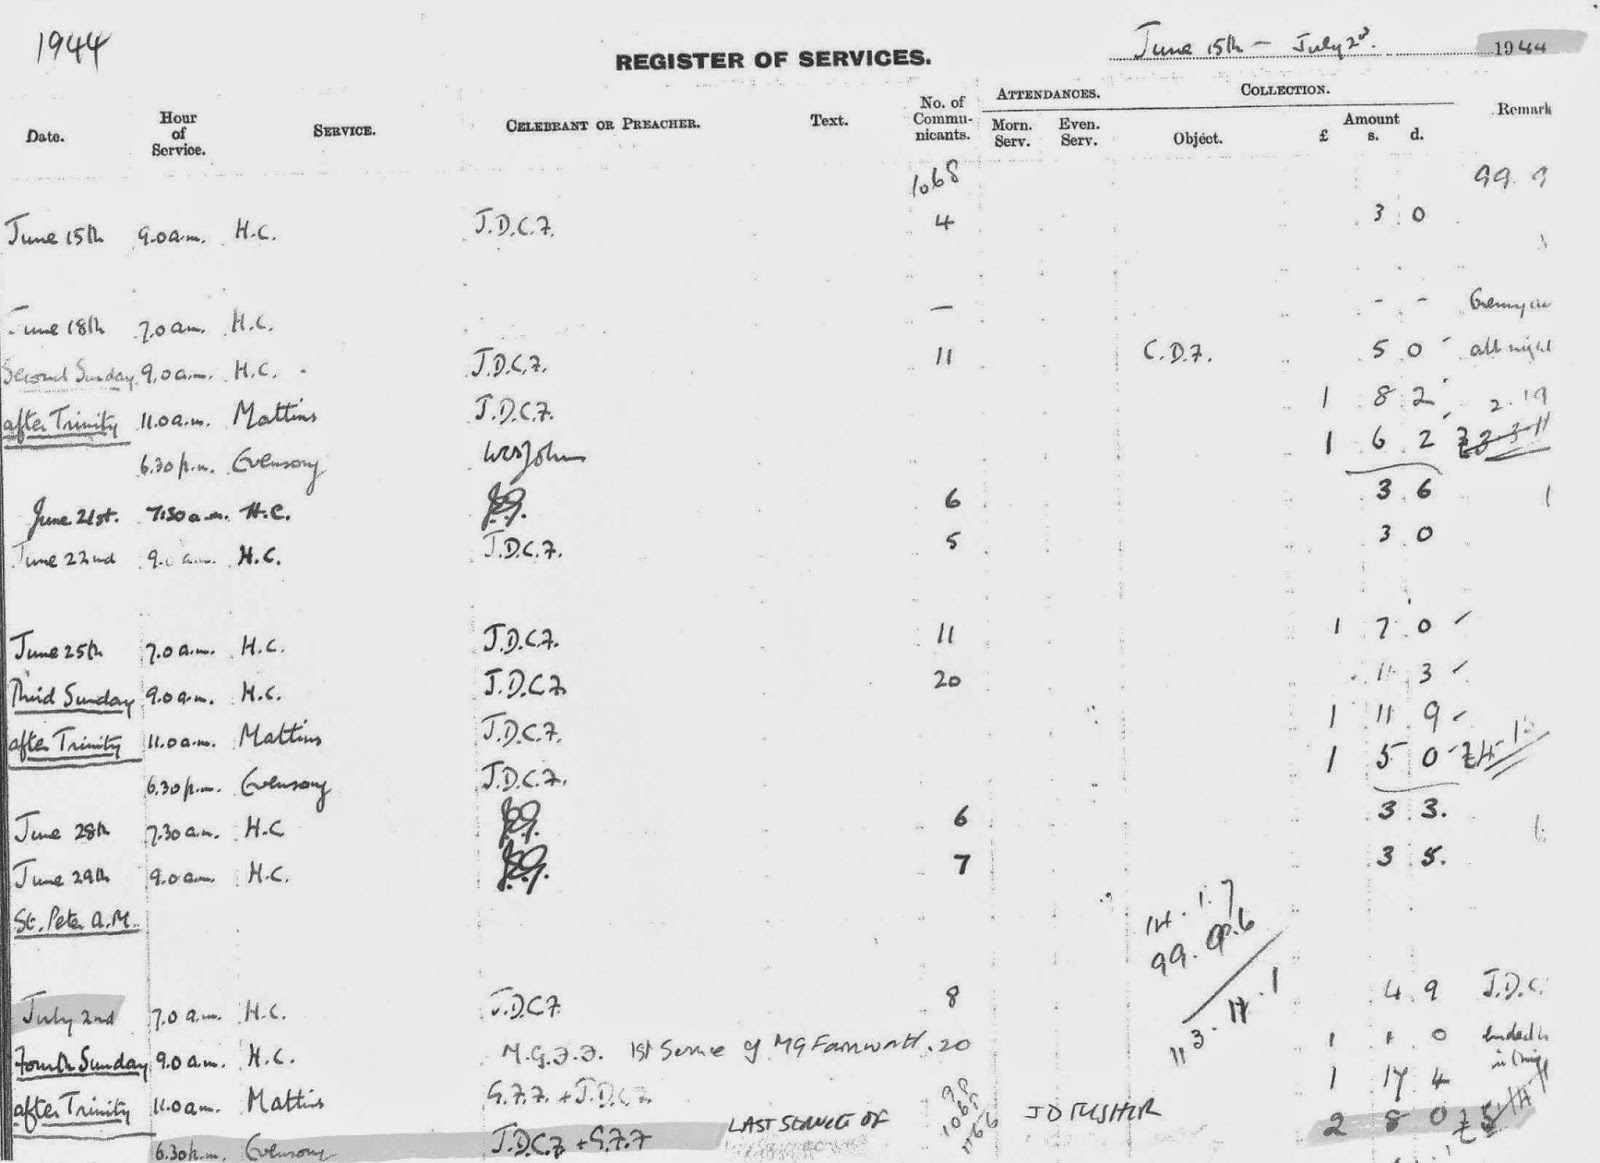 1944
REGISTER OF SERVICES.
June 15th - July 2nd. 1944
Date. Hour of Service. SERVICE. CELEBRANT OR PREACHER. Text. No. of Communicants. ATTENDANCES. Morn. Serv. Even. Serv. COLLECTION. Object. Amount £ s. d. Remark
1068 99. 9
June 15th 9.0 a.m. H.C. J.D.C.F. 4 3 0
June 18th 7.0 a.m. H.C. — - -
Second Sunday 9.0 a.m. H.C. J.D.C.F. 11 C.D.F. 5 0 all night
after Trinity 11.0 a.m. Mattins J.D.C.F. 1 8 2 2.19
6.30 p.m. Evensong 1 6 2
June 21st. 7.30 a.m. H.C. 6 3 6
June 22nd 9.0 a.m. H.C. J.D.C.F. 5 3 0
June 25th 7.0 a.m. H.C. J.D.C.F. 11 1 7 0
Third Sunday 9.0 a.m. H.C. J.D.C.F. 20 11 3
after Trinity 11.0 a.m. Mattins J.D.C.F. 1 11 9
6.30 p.m. Evensong J.D.C.F. 1 5 0
June 28th 7.30 a.m. H.C 6 3 3.
June 29th 9.0 a.m. H.C. 7 3 5.
St. Peter A.M.
14.1.7
99. 6
113.11.1
July 2nd 7.0 a.m. H.C. J.D.C.F. 8 4 9 J.D.C.
Fourth Sunday 9.0 a.m. H.C. M.G.F.F. 1st Service of MG Farnworth. 20 1 1 0
after Trinity 11.0 a.m. Mattins G.F.F. + J.D.C.F. 1 17 4
6.30 p.m. Evensong J.D.C.F + G.F.F LAST SERVICE OF J D FISHER 2 8 0
98
1068
1166